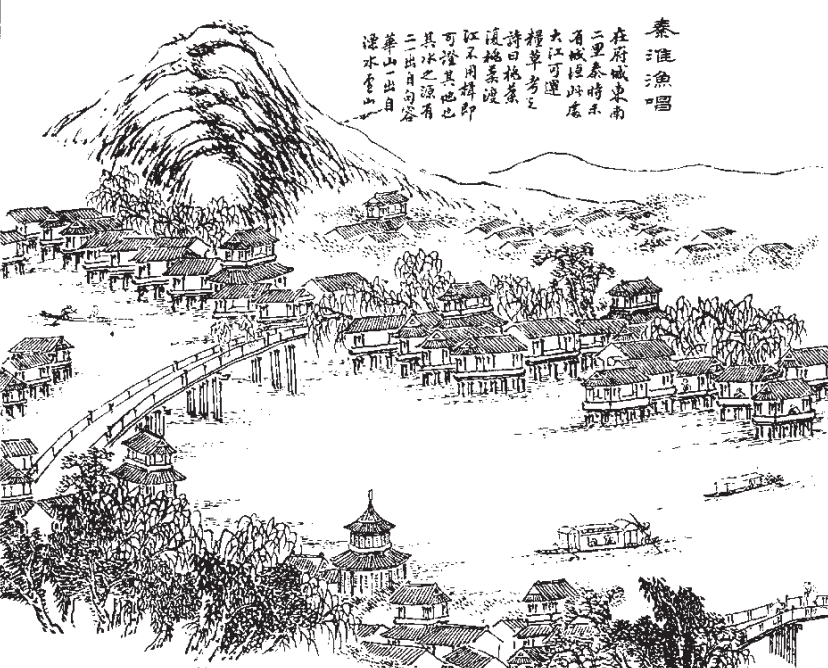 秦淮漁唱
在府城東南
二里秦時鑿
有城垣此處
大江可運
糧草考之
詩曰桃葉
復桃葉渡
江不用楫即
可證其他也
其水之源有
二一出自句容
華山一出自
溧水